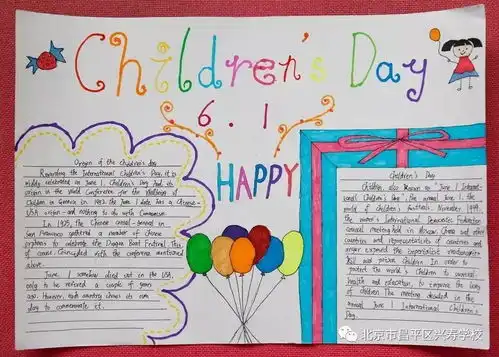 Children's Day
6.1
HAPPY
Origin of the children's day
Regarding the International Children's Day, it is
widely celebrated on June 1. Children's Day had its
origin in the World Conference for the Wellbeing of
Children in Geneva in 1925. the June 1 date has a Chinese-
USA origin and nothing to do with Communism.
In 1925, the Chinese consul-general in
San Francisco gathered a number of Chinese
orphans to celebrate the Dragon Boat Festival. This
of cause. Coincided with the conference mentioned
above.
June 1 somehow died out in the USA,
only to be revived a couple of years
ago. However, each country chose its own
day to commemorate it.
Children's Day
Children also known as June 1 Internat-
ional Children's Day. The annual June 1 the
world of children's festivals. November 1949,
the women's International Democratic Federation
council meeting held in Moscow, China and other
countries and representatives of countries and
anger exposed the imperialist
kill and poison Children. In order to
protect the world's Children to survival,
health and education, to improve the living
of children. The meeting decided in the
annual June 1 International Children's
Day.
北京市昌平区兴寿学校